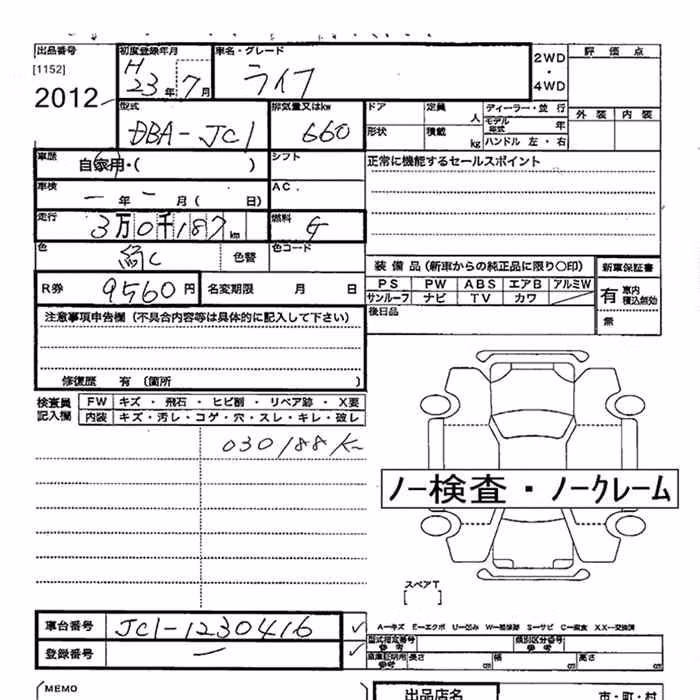 出品番号 初度登録年月 車名・グレード 評価点
[1152] H 2WD
2012 23年 7月 ライフ ・
4WD
型式 排気量又はkw ドア 定員 人 ディーラー・並行 外装 内装
DBA-JC1 660 モデル年式 年
形状 積載 kg ハンドル 左・右
車歴 自家用・( ) シフト 正常に機能するセールスポイント
車検 一年一月( 日) A C .
走行 3万0千187km 燃料
色 色替 色コード
装備品(新車からの純正品に限り○印) 新車保証書
R券 9560円 名変期限 月 日 PS PW ABS エアB アルミW 有 車内積込無効
サンルーフ ナビ TV カワ
後日品 無
注意事項申告欄(不具合内容等は具体的に記入して下さい)
修復歴 有(箇所 )
検査員 FW キズ・飛石・ヒビ割・リペア跡・X要
記入欄 内装 キズ・汚レ・コゲ・穴・スレ・キレ・破レ
030188K
ノー検査・ノークレーム
スペアT
[ ]
車台番号 JC1-1230416 A―キズ E―エクボ U―凹み S―サビ C―腐食 XX―交換済
型式指定番号 参考 類別区分番号 参考
登録番号 一 長さ cm 幅 cm 高さ cm
MEMO 出品店名 市・町・村